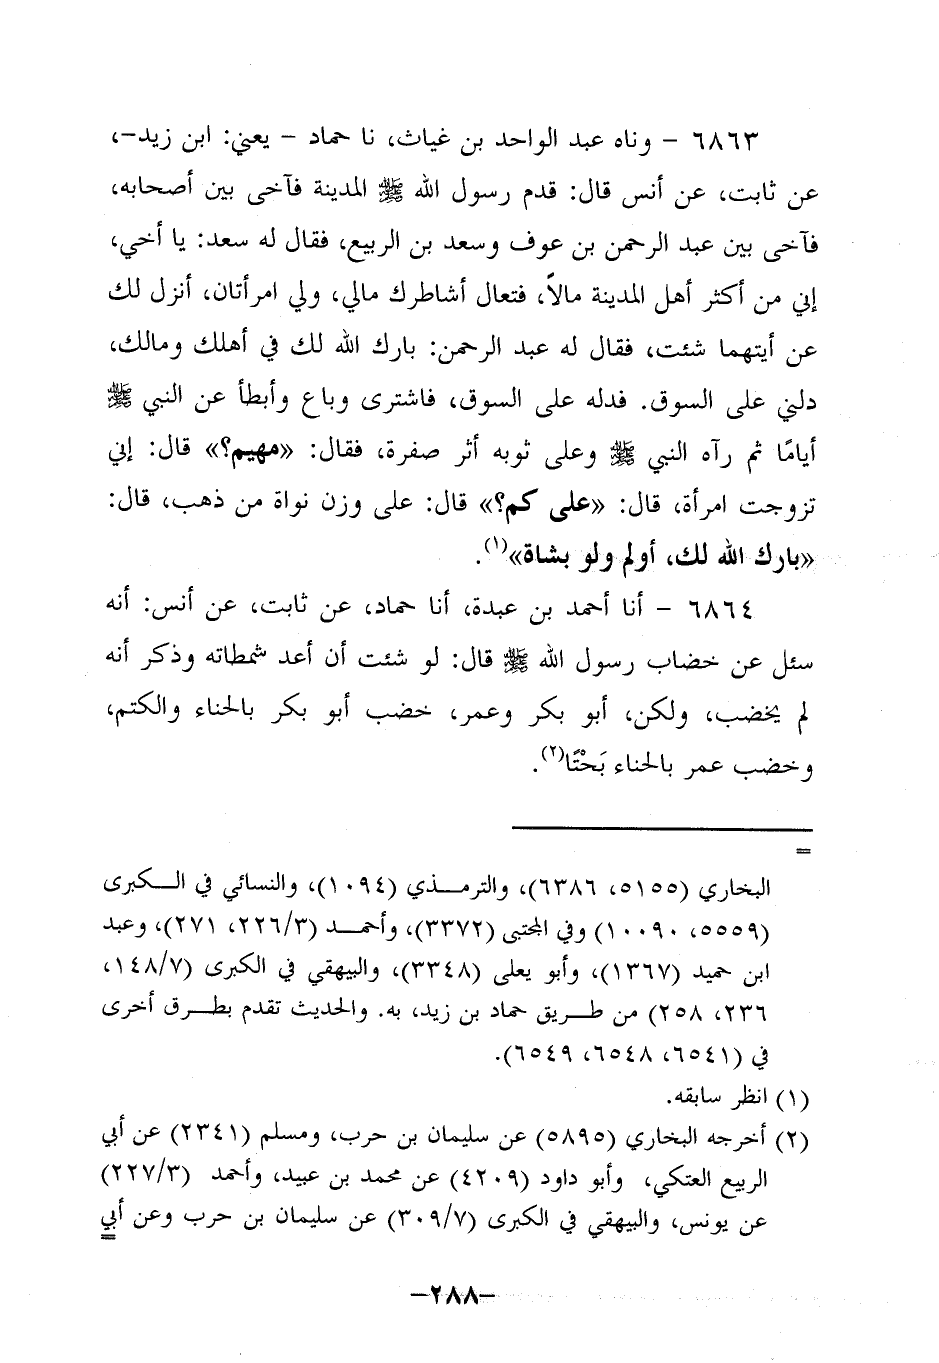 ٦٨٦٣ - وناه عبد الواحد بن غياث، نا حماد - يعني: ابن زيد-،
عن ثابت، عن أنس قال: قدم رسول الله ﷺ المدينة فآخى بين أصحابه،
فآخى بين عبد الرحمن بن عوف وسعد بن الربيع، فقال له سعد: يا أخي،
إني من أكثر أهل المدينة مالاً، فتعال أشاطرك مالي، ولي امرأتان، أنزل لك
عن أيتهما شئت، فقال له عبد الرحمن: بارك الله لك في أهلك ومالك،
دلني على السوق. فدله على السوق، فاشترى وباع وأبطأ عن النبي ﷺ
أيامًا ثم رآه النبي ﷺ وعلى ثوبه أثر صفرة، فقال: «مهيم؟» قال: إني
تزوجت امرأة، قال: «على كم؟» قال: على وزن نواة من ذهب، قال:
«بارك الله لك، أولم ولو بشاة»(١).
٦٨٦٤ - أنا أحمد بن عبدة، أنا حماد، عن ثابت، عن أنس: أنه
سئل عن خضاب رسول الله ﷺ قال: لو شئت أن أعد شمطاته وذكر أنه
لم يخضب، ولكن، أبو بكر وعمر، خضب أبو بكر بالحناء والكتم،
وخضب عمر بالحناء بَحْتًا(٢).
=
البخاري (٥١٥٥، ٦٣٨٦)، والترمذي (١٠٩٤)، والنسائي في الكبرى
(٥٥٥٩، ١٠٠٩٠) وفي المجتبى (٣٣٧٢)، وأحمد (٢٢٦/٣، ٢٧١)، وعبد
ابن حميد (١٣٦٧)، وأبو يعلى (٣٣٤٨)، والبيهقي في الكبرى (١٤٨/٧،
٢٣٦، ٢٥٨) من طريق حماد بن زيد، به. والحديث تقدم بطرق أخرى
في (٦٥٤١، ٦٥٤٨، ٦٥٤٩).
(١) انظر سابقه.
(٢) أخرجه البخاري (٥٨٩٥) عن سليمان بن حرب، ومسلم (٢٣٤١) عن أبي
الربيع العتكي، وأبو داود (٤٢٠٩) عن محمد بن عبيد، وأحمد (٢٢٧/٣)
عن يونس، والبيهقي في الكبرى (٣٠٩/٧) عن سليمان بن حرب وعن أبي
=
-٢٨٨-